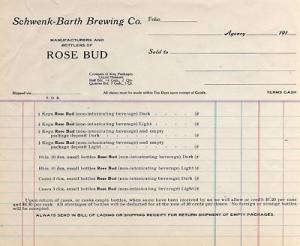 Schwenk-Barth Brewing Co.
Folio
MANUFACTURERS AND
BOTTLERS OF
ROSE BUD
Agency 191
Sold to
Contents of Keg Packages
Liquid Measure
Shipped via
All claims must be made within Ten Days upon receipt of Goods.
TERMS CASH
F. O. B.
½ Kegs Rose Bud (non-intoxicating beverage) Dark - @
Kegs Rose Bud (non-intoxicating beverage) Light - @
Kegs Rose Bud (non-intoxicating beverage) and empty
package deposit Dark @
Kegs Rose Bud (non-intoxicating beverage) and empty
package deposit Light @
Bbls. 10 doz. small bottles Rose Bud (non-intoxicating beverage) Dark @
Bbls. 10 doz. small bottles Rose Bud (non-intoxicating beverage) Light @
Cases 3 doz. small bottles Rose Bud (non-intoxicating beverage) Dark @
Cases 3 doz. small bottles Rose Bud (non-intoxicating beverage) Light @
Upon return of cases, or casks empty bottles, when same have been received by us we will allow or credit
per case. All shortages of bottles will be deducted for at the rate of 30 cents per doz. No foreign or strange bottles
will be accepted.
ALWAYS SEND IN BILL OF LADING OR SHIPPING RECEIPT FOR RETURN SHIPMENT OF EMPTY PACKAGES.